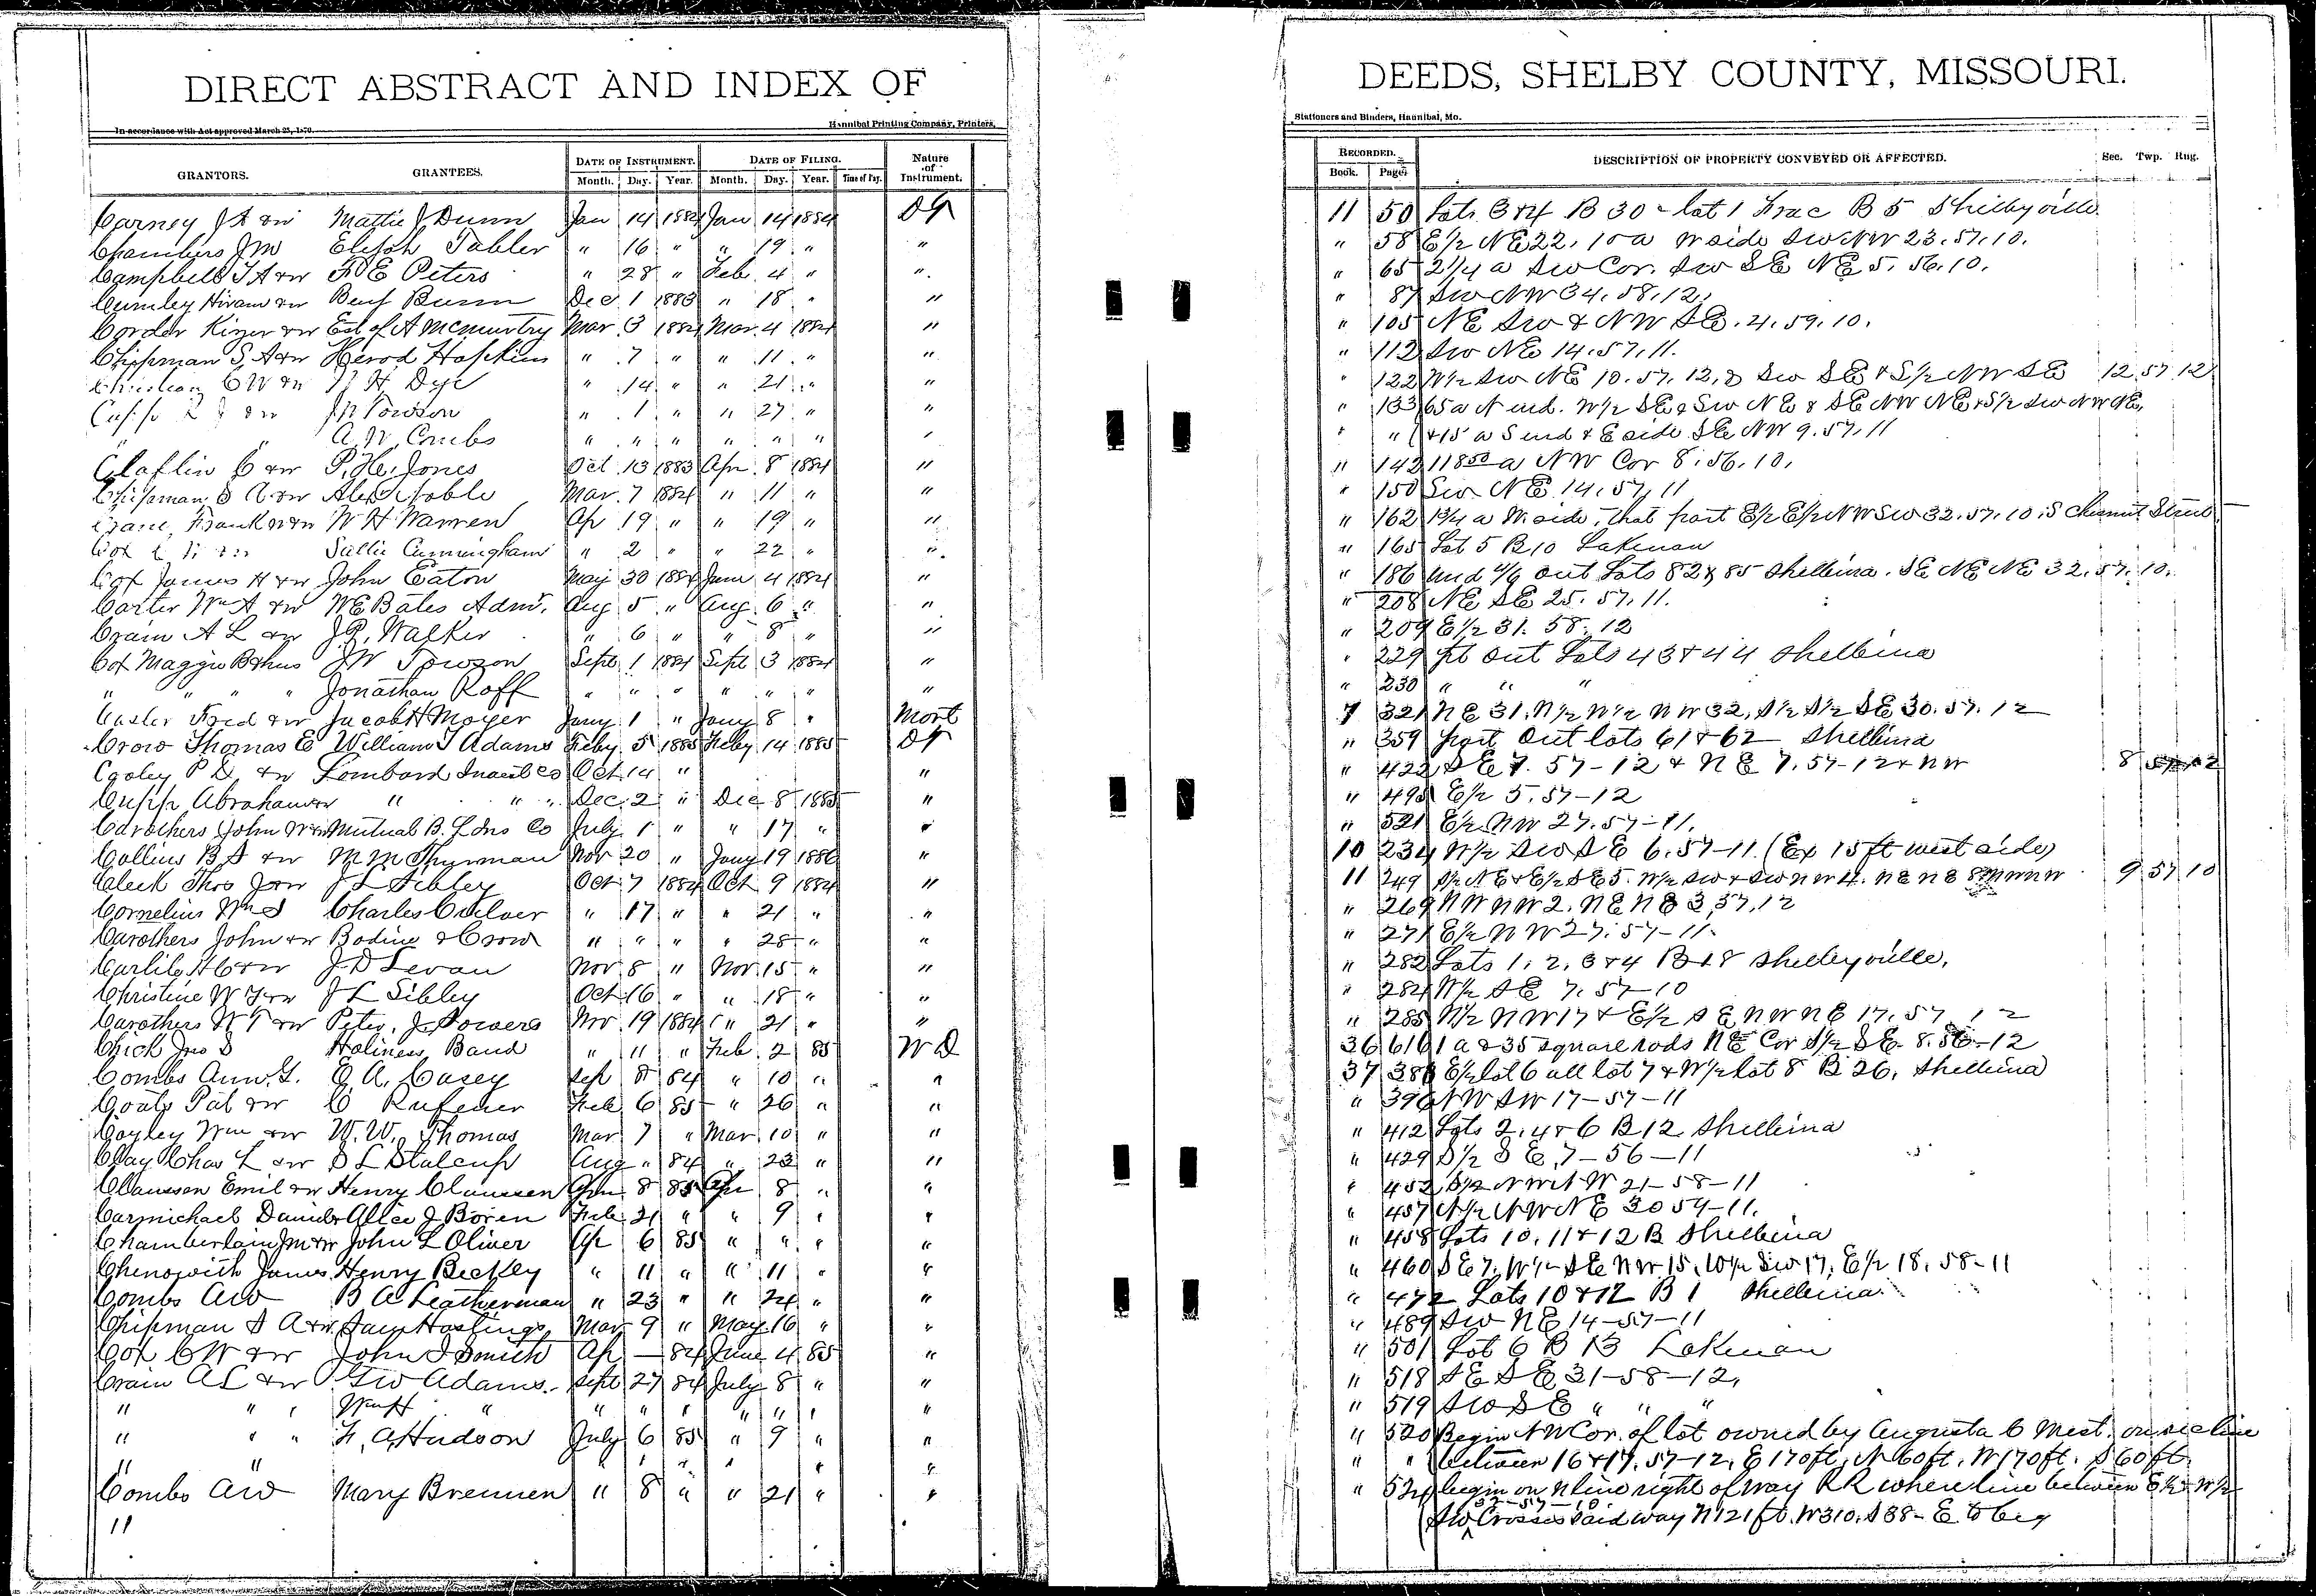 DIRECT ABSTRACT AND INDEX OF
In accordance with Act approved March 25, 1870.
Hannibal Printing Company, Printers,
GRANTORS. GRANTEES. DATE OF INSTRUMENT. DATE OF FILING. Nature of Instrument.
Month. Day. Year. Month. Day. Year. Time of Day.
Carney J A & w Mattie J Dunn Jan 14 1884 Jan 14 1884 DT
Chambers J M Elijah Tabler " 16 " " 19 " "
Campbell T A & w F E Peters " 28 " Feb 4 " "
Cumley Hiram & w Benj Bunn Dec 1 1883 " 18 " "
Corder Kizer & w Est of A McMurtry Mar 3 1884 Mar 4 1884 "
Chipman S A & w Herod Hopkins " 7 " " 11 " "
Christian C W & w H Dye " 14 " " 21 " "
Cupp & w J W Towson " 1 " " 27 " "
" " A. W. Combs " " " " " " "
Claflin C & w P. H. Jones Oct 13 1883 Apr 8 1884 "
Chipman S A & w Alex Noble Mar 7 1884 " 11 " "
Crane, Frank W & w W H Warren Ap 19 " " 19 " "
Cox & w Sallie Cunningham " 2 " " 22 " "
Cox James H & w John Eaton May 30 1884 June 4 1884 "
Carter Wm A & w W E Bates Admr. Aug 5 " Aug 6 " "
Crain A L & w J. R. Walker " 6 " " 8 " "
Cox Maggie B & hus J W Towson Sept 1 1884 Sept 3 1884 "
" " " " Jonathan Roff " " " " " " "
Casler Fred & w Jacob H Moyer Jany 1 " Jany 8 " Mort
Crow Thomas E William T Adams Feby 5 1885 Feby 14 1885 DT
Cooley P D & w Lombard Invest Co Oct 14 " "
Cupp Abraham & w " " " Dec 2 " Dec 8 1885 "
Carothers John W & w Mutual B. L Ins Co July 1 " " 17 " "
Collins B S & w M M Thurman Nov 20 " Jany 19 1886 "
Cleek Thos J & w J L Sibley Oct 7 1884 Oct 9 1884 "
Cornelius Wm S Charles Culver " 17 " " 21 " "
Carothers John & w Bodine & Crow " " " " 28 " "
Carlile H C & w J D Levan Nov 8 " Nov 15 " "
Christine W T & w J L Sibley Oct 16 " " 18 " "
Carothers W T & w Peter J Powers Nov 19 1884 " 21 " "
Chick Jno S Holiness Band " 11 " Feb 2 85 W D
Combs Ann G. E. A. Casey Sep 8 84 " 10 " "
Coats Pat & w C Rufener Feb 6 85 " 26 " "
Cayley Wm & w W. W. Thomas Mar 7 " Mar 10 " "
Clay Chas L & w S L Stalcup Aug " 84 " 23 " "
Claussen Emil & w Henry Claussen Apr 8 85 Apr 8 " "
Carmichael Daniel & Alice J Boren Feb 21 " " 9 " "
Chamberlain J M & w John L Oliver Ap 6 85 " " " "
Chenowith James Henry Beckley " 11 " " 11 " "
Combs A W B A Leatherman " 23 " " 24 " "
Chipman S A & w Sam Hastings Mar 9 " May 16 " "
Cox C W & w John S Smith Ap — 84 June 4 85 "
Crain A L & w G W Adams Sept 27 84 July 8 " "
" " " Wm H " " " " " " " "
" " " F. A. Hudson July 6 85 " 9 " "
" " " " " " "
Combs A W Mary Brennen " 8 " " 21 " "
"
DEEDS, SHELBY COUNTY, MISSOURI.
Stationers and Binders, Hannibal, Mo.
RECORDED. DESCRIPTION OF PROPERTY CONVEYED OR AFFECTED. Sec. Twp. Rng.
Book. Page.
11 50 Lots 3 & 4 B 30 - lot 1 Frac B 5 Shelbyville
" 58 E½ NE 22, 10 a W side SW NW 23. 57. 10.
" 65 2¼ a SW Cor. SW SE NE 5. 56. 10.
" 87 SW NW 34. 58. 12.
" 105 NE SW & NW SE. 4. 59. 10.
" 112 SW NE 14. 57. 11.
" 122 W½ SW NE 10. 57. 12, & SW SE & S½ NW SE 12 57 12
" 133 65 a N end. W½ SE & SW NE & SE NW NE & S½ SW NW NE,
" " & 15 a S end & E side SE NW 9. 57. 11
" 142 118 50 a NW Cor 8. 56. 10.
" 150 SW NE 14. 57. 11
" 162 1¾ a W side, that part E½ E½ NW SW 32. 57. 10. S Chesnut Street
" 165 Lot 5 B 10 Lakenan
" 186 Und out Lots 82 & 85 Shelbina. SE NE NE 32. 57. 10.
" 208 NE SE 25. 57. 11.
" 209 E½ 31. 58. 12
" 229 pt Out Lots 43 & 44 Shelbina
" 230 " " "
7 321 NE 31, N½ W½ NW 32, S½ S½ SE 30. 57. 12
" 359 part Out lots 61 & 62 Shelbina
" 422 SE 7. 57-12 & NE 7. 57-12 & NW 8 57 12
" 495 E½ 5. 57-12
" 521 E½ NW 27. 57-11.
10 234 W½ SW SE 6. 57-11 (Ex 15 ft west side)
11 249 S½ NE & E½ SE 5. W½ SW & SW NW 4. NE NE 8 NW NW 9 57 10
" 269 NW NW 2. NE NE 3, 57, 12
" 271 E½ NW 27. 57-11.
" 282 Lots 1, 2, 3 & 4 B 18 Shelbyville,
" 284 W½ SE 7. 57-10
" 285 N½ NW 17 & E½ SE NW NE 17. 57 12
36 616 1 a & 35 square rods NE Cor S½ SE 8. 56-12
37 388 E½ lot 6 all lot 7 & W½ lot 8 B 26, Shelbina
" 396 NW SW 17-57-11
" 412 Lots 2, 4 & 6 B 12 Shelbina
" 429 S½ SE, 7-56-11
" 452 S½ NW NW 21-58-11
" 457 N½ NW NE 30 59-11.
" 458 Lots 10, 11 & 12 B Shelbina
" 460 SE 7, W½ SE NW 15, W½ SW 17, E½ 18, 58-11
" 472 Lots 10 & 12 B 1 Shelbina
" 489 SW NE 14-57-11
" 501 Lot 6 B 13 Lakenan
" 518 SE SE 31-58-12,
" 519 SW SE " " "
" 520 Begin NW Cor. of lot owned by Augusta C Mest. on sec line
" " between 16 & 17, 57-12, E 170 ft, N 60 ft, W 170 ft. S 60 ft.
" 524 begin on N line right of way RR where line between E½ & W½
32-57-10
SW Crosses said way N 121 ft. W 310, S 88- E to beg